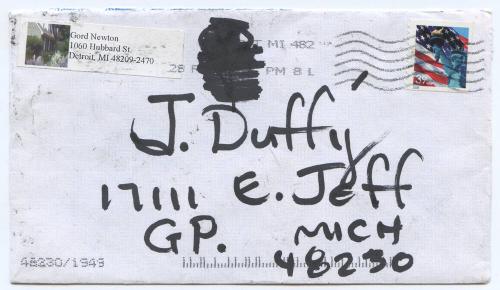 Gord Newton
1060 Hubbard St.
Detroit, MI 48209-2470
MI 482
28
PM 8 L
J. Duffy
17111 E. Jeff
GP. MICH
48230
48230/1949